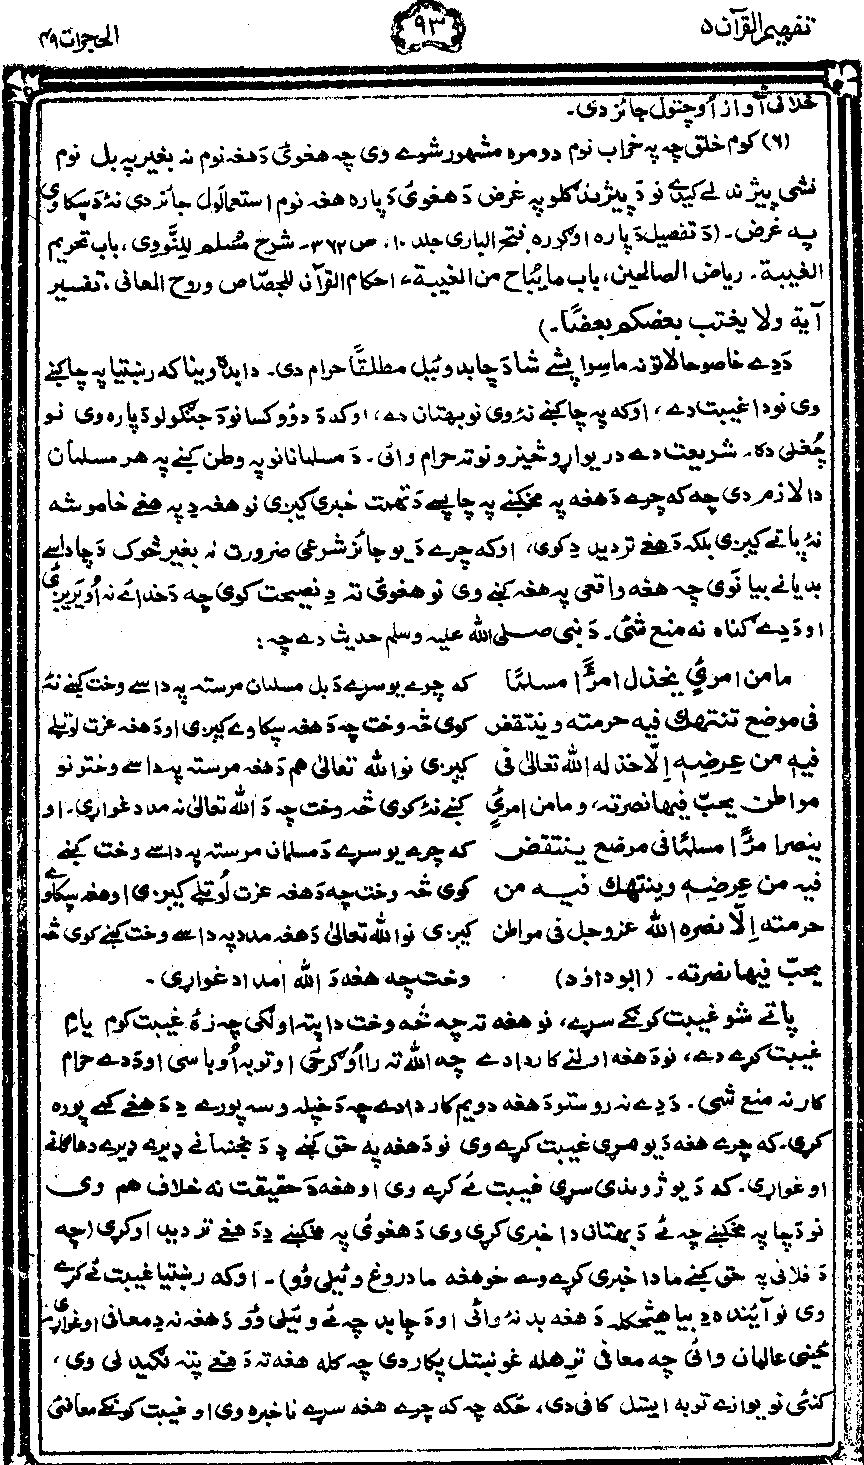 تفهیم القرآن ۵
۹۳
الحجرات ۴۹
خلاف آواز اوچتول جائز دی۔
(۶) کوم خلق چه په خراب نوم دومره مشهور شوے وی چه هغوئ دَ هغه نوم نه بغیر په بل نوم
نشی پیژندلے کیدے نو دَ پیژندګلو په غرض دَ هغوئ دَ پاره هغه نوم استعمالول جائز دی نهٔ دَ سپکاوی
په غرض۔ (دَ تفصیل دَ پاره اوګوره فتح الباری جلد ۱۰، ص ۳۶۲۔ شرح مُسلم للِنَّووِی، باب تحریم
الغیبة۔ ریاض الصالحین، باب مایُباح من الغیبة، احکام القرآن للجصّاص وروح المعانی، تفسیر
آیة ولا یغتب بعضکم بعضًا۔)
دَ دے خاصو حالاتو نه ماسوا پشے شا دَ چا بد وئیل مطلقًا حرام دی۔ دا بده وینا که رښتیا په چا کښے
وی نو دا غیبت دے، او که په چا کښے نهٔ وی نو بهتان دے، او که دَ دوؤ کسانو دَ جنګولو دَ پاره وی نو
چُغلی ده۔ شریعت دے دریواړو څیزونو ته حرام وائی۔ دَ مسلمانانو په وطن کښے په هر مسلمان
دا لازم دی چه که چرے دَ هغه په مخکښے په چا پسے دَ تهمت خبری کیږی نو هغه دِ په هغے خاموشه
نهٔ پاتے کیږی بلکه دَ هغے تردید دِ کوی، او که چرے دَ یو جائز شرعی ضرورت نه بغیر څوک دَ چا داسے
بد یانے بیانَوی چه هغه واقعی په هغه کښے وی نو هغوئ ته دِ نصیحت کوی چه دَ خدائے نه اُویریږئ
او دَ دے ګناه نه منع شئ۔ دَ نبی صلی الله علیه وسلم حدیث دے چه:
مامن امرئ یخذل امرًأ مسلمًا
فی موضع تنتهك فیه حرمته وینتقض
فیه من عِرضِهٖ اِلّا خذله الله تعالیٰ فی
مواطن یحبّ فیها نصرته، و مامن امرئٍ
ینصر امرًأ مسلمًا فی موضع ینتقض
فیه من عِرضِهٖ وینتهك فیه من
حرمته اِلّا نصره الله عزوجل فی مواطن
یحبّ فیها نصرته۔ (ابوداؤد)
که چرے یو سرے دَ بل مسلمان مرسته په داسے وخت کښے نهٔ
کوی څه وخت چه دَ هغه سپکاوے کیږی او دَ هغه عزت لوټلے
کیږی نو الله تعالیٰ هم دَ هغه مرسته په داسے وختونو
کښے نهٔ کوی څه وخت چه دَ الله تعالیٰ نه مدد غواړی۔ او
که چرے یو سرے دَ مسلمان مرسته په داسے وخت کښے
کوی څه وخت چه دَ هغه عزت لُوټلے کیږی او هغه سپکاوے
کیږی نو الله تعالیٰ دَ هغه مدد په داسے وخت کښے کوی څه
وخت چه هغه دَ الله امداد غواړی۔
پاتے شو غیبت کونکے سرے، نو هغه ته چه څه وخت دا پته اولګی چه زهٔ غیبت کوم یا مِ
غیبت کړے دے، نو دَ هغه اولنے کار دا دے چه الله ته رااُوګرځی او توبه اُوباسی او دَ دے حرام
کار نه منع شی۔ دَ دے نه روستو دَ هغه دویم کار دا دے چه دَ خپله وسه پورے دِ دَ هغے کمے پوره
کړی۔ که چرے هغه دَ یو مړی غیبت کړے وی نو دَ هغه په حق کښے دِ دَ بخښانے ډیرے ډیرے دعاګانے
اوغواړی۔ که دَ یو ژوندی سړی غیبت ئے کړے وی او هغه دَ حقیقت نه خلاف هم وی
نو دَ چا په مخکښے چه ئے دَ بهتان دا خبری کړی وی دَ هغوئ په مخکښے دِ دَ هغے تردید اوکړی (چه
دَ فلانی په حق کښے ما دا خبری کړے وے خو هغه ما دروغ وئیلی وُو)۔ او که رښتیا غیبت ئے کړے
وی نو آئینده دِ بیا هیڅکله دَ هغه بد نهٔ وائی او دَ چا بد چه ئے وئیلی وُو دَ هغه نه دِ معافی اوغواړی۔
ځینی عالمان وائی چه معافی ترهله غوښتل پکار دی چه کله هغه ته دَ هغے پته لګیدلی وی،
کنئی نو یوازے توبه ایستل کافی دی، ځکه چه که چرے هغه سرے ناخبره وی او غیبت کونکے معافئ